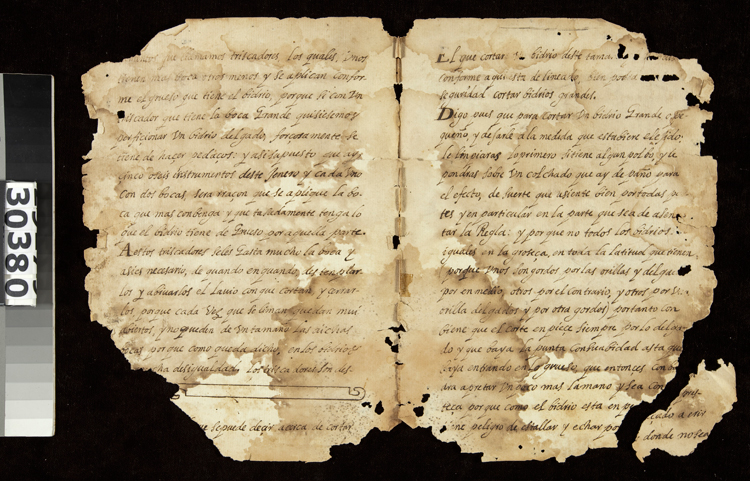 que llamamos triscadores, los quales, Unos
tienen mas boca otros menos y se aplican confor-
me el grueso que tiene el bidrio, porque si con Un
triscador que tiene la boca Grande quisiesemos
perficionar Un bidrio delgado, forçosamente se
tiene de hacer pedaços y assi supuesto que ay
cinco o seis instrumentos deste Jenero y cada Uno
con dos bocas, sera rraçon que se aplique la bo-
ca que mas conbenga y que tasadamente tenga lo
que el bidrio tiene de Grueso por aquella parte.
A estos triscadores seles Gasta mucho la boca y
assi es necesario, de quando en quando, destemplar
los y abibarlos el Lavio con que cortan y cerrar
los, porque cada Vez que se liman quedan mui
abiertos, y no pueden de Un tamaño las dichas
bocas porque como queda dicho, en los bidrios
desigualdad. Los triscadores son des-
que se puede decir acerca de cortar
El que cortar Un bidrio deste tama
conforme a qui esta delineado, bien podra
seguridad cortar bidrios grandes.
Digo pues que para cortar Un bidrio Grande o pe-
queño, y dejarle a la medida que estubiere elejido,
se limpiaras lo primero si tiene algun polbo, y le
pondras sobre Un colchado que ay de paño para
el efecto, de suerte que asiente bien por todas pa
tes y en particular en la parte que sea de asen
tar la Regla: y por que no todos los bidrios
iguales en la groseça, en toda la latitud que tienen
porque Unos son gordos por las orillas y delga
por en medio, otros por el contrario, y otros por Un
orilla delgados y por otra gordos) por tanto con
biene que el corte en piece siempre por lo delga
do y que baya la punta con suabidad asta que
baya entrando en lo grueso, que entonces con
dra apretar Un poco mas la mano y sea con pres-
teça porque como el bidrio esta en pe cado a cris
tiene peligro de estallar y echar por donde no sea
30380